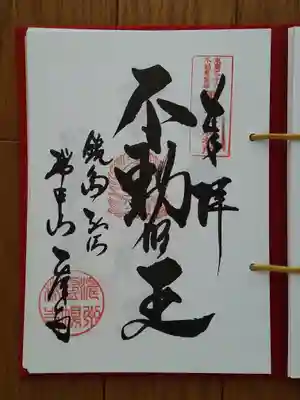 奉拝
不動明王
鏡島弘法
瑞甲山 乙津寺